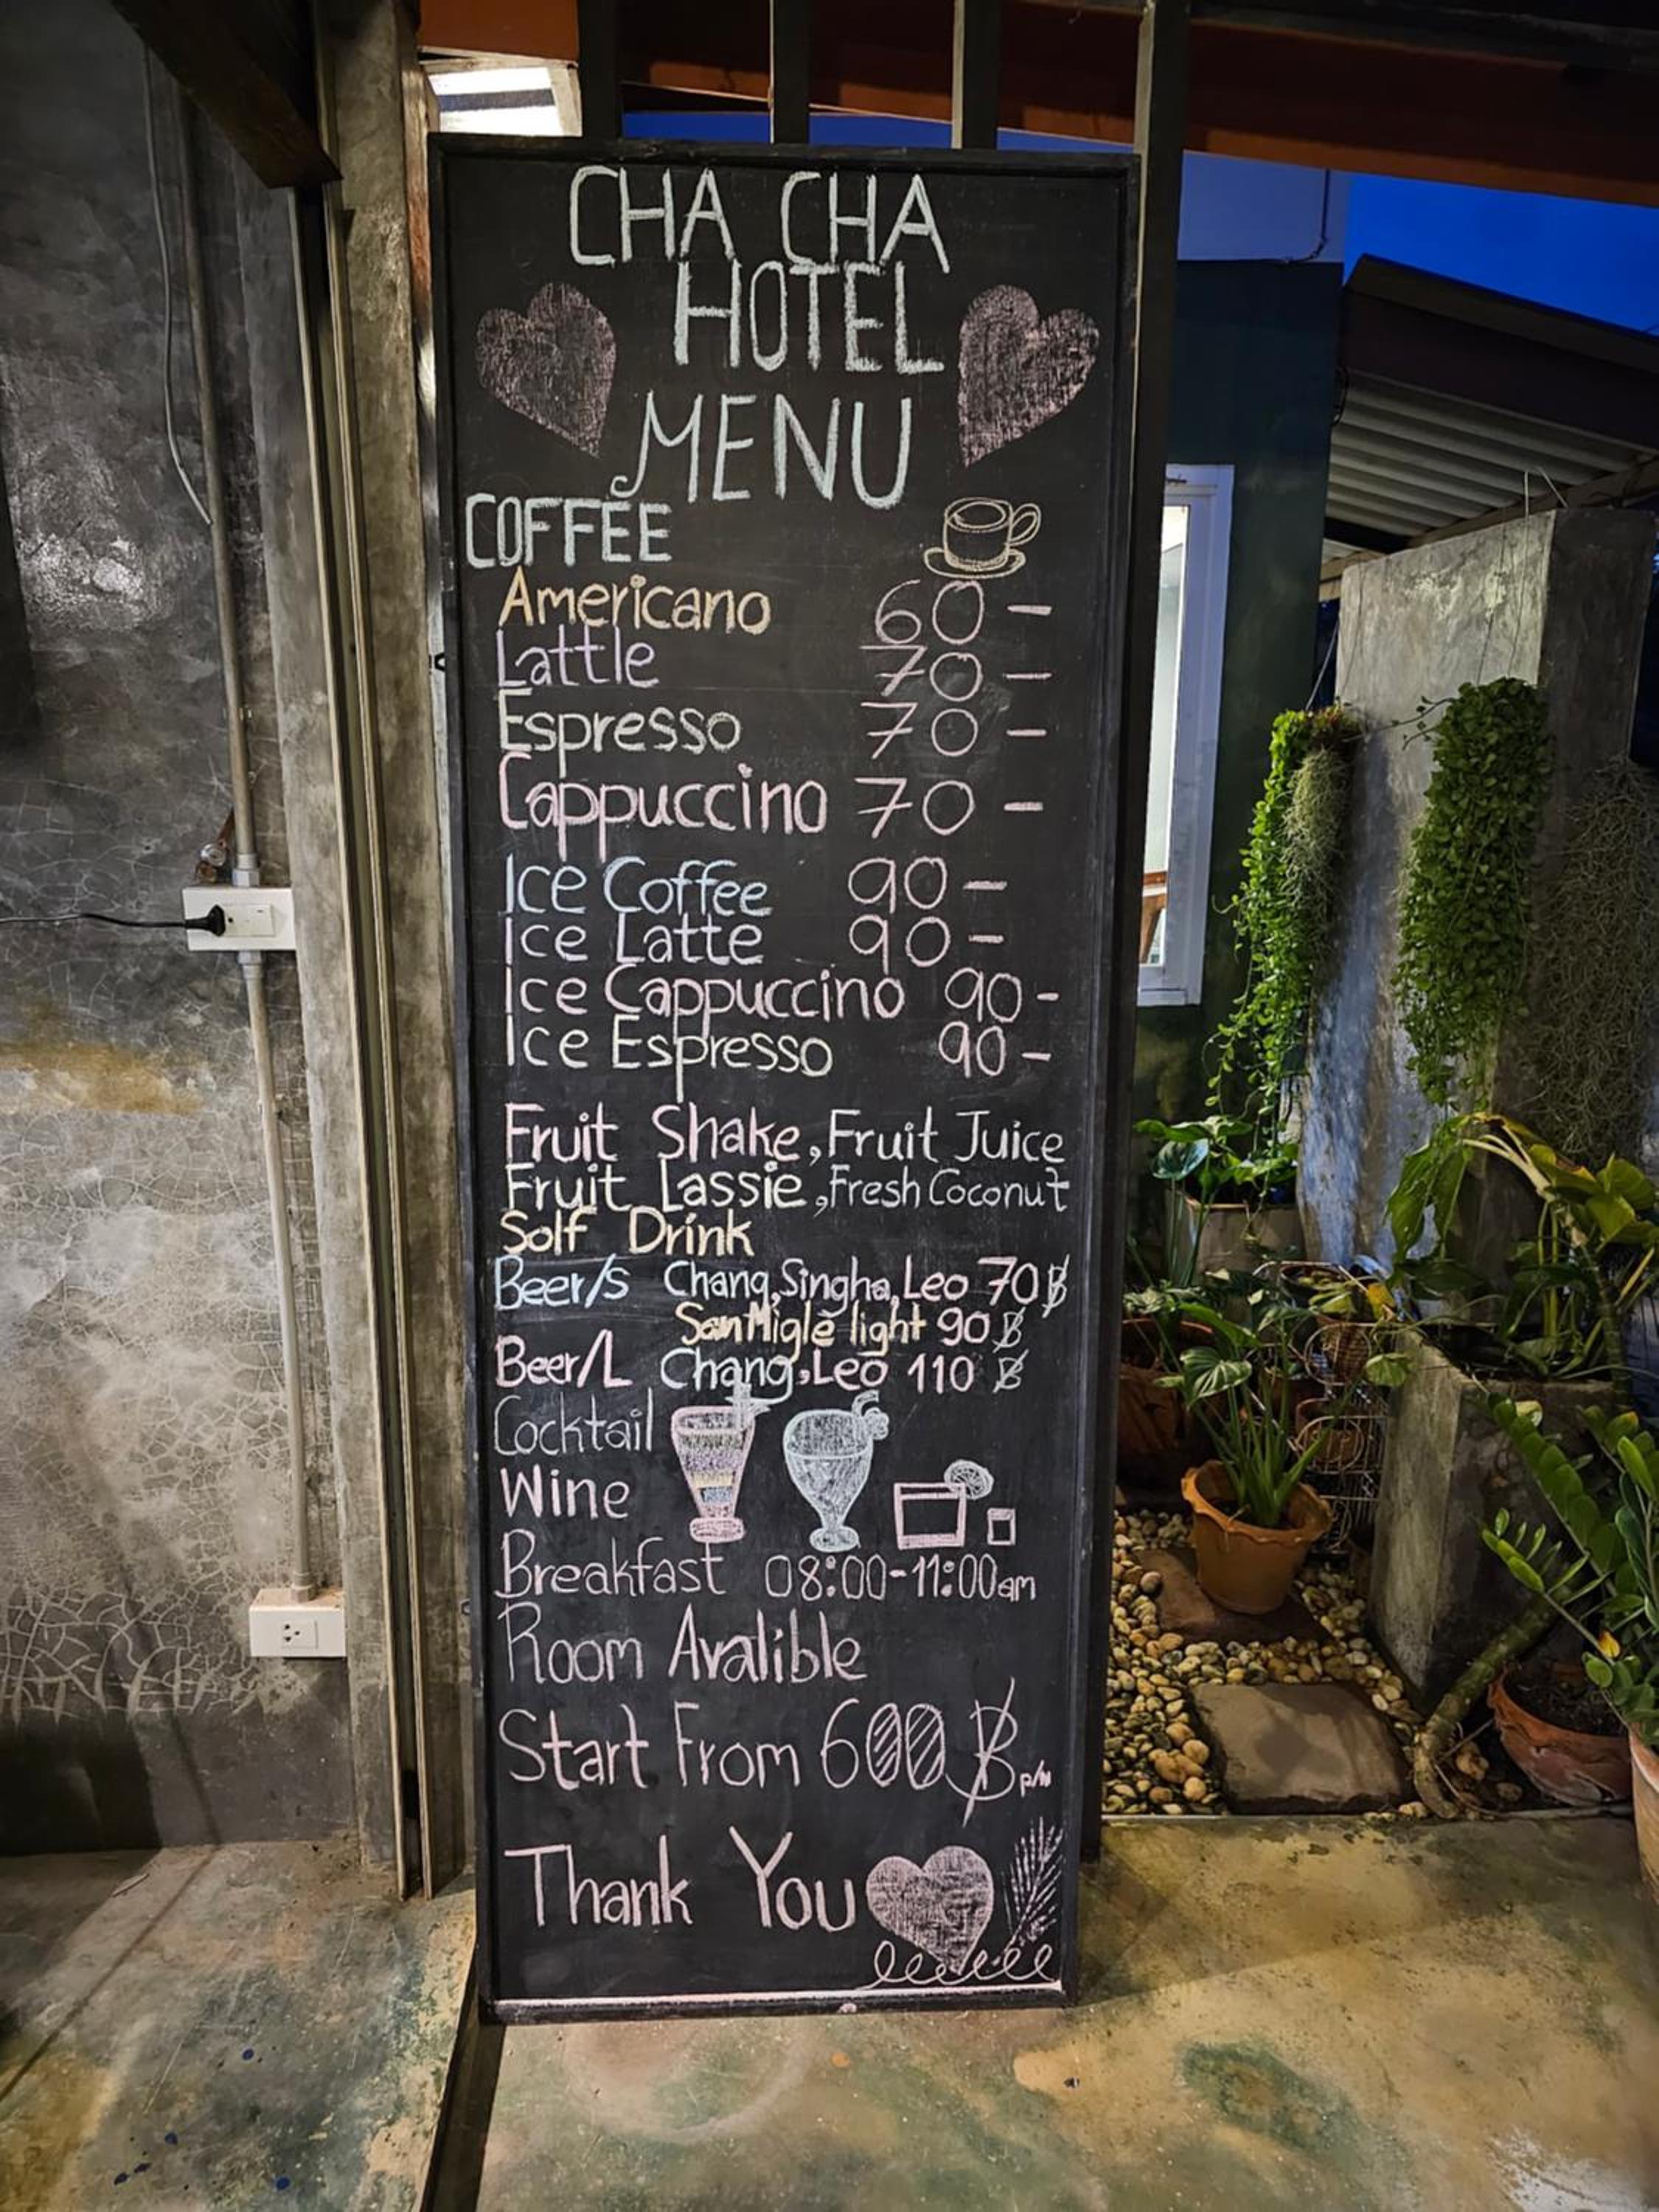 CHA CHA
HOTEL
MENU
COFFEE
Americano 60 -
Lattle 70 -
Espresso 70 -
Cappuccino 70 -
Ice Coffee 90 -
Ice Latte 90 -
Ice Cappuccino 90 -
Ice Espresso 90 -
Fruit Shake, Fruit Juice
Fruit Lassie, Fresh Coconut
Solf Drink
Beer/s Chang, Singha, Leo 70 ฿
San Migle light 90 ฿
Beer/L Chang, Leo 110 ฿
Cocktail
Wine
Breakfast 08:00-11:00am
Room Avalible
Start From 600 ฿ p/n
Thank You